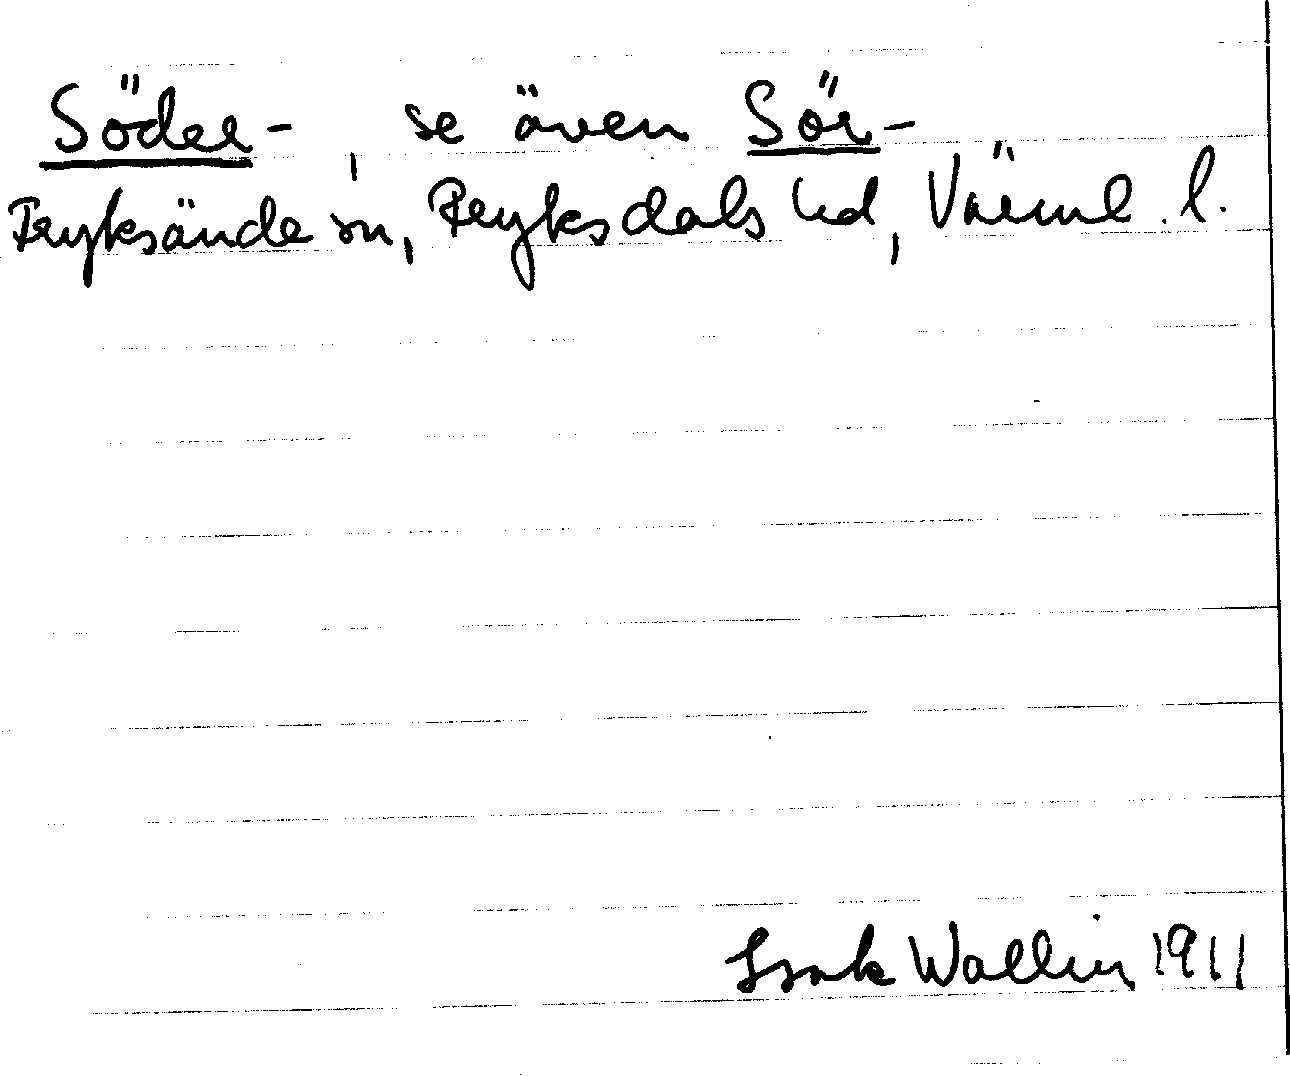 Söder-, se även Sör-
Fryksände sn, Fryksdals hd, Värml. l.
Isak Wallin 1911